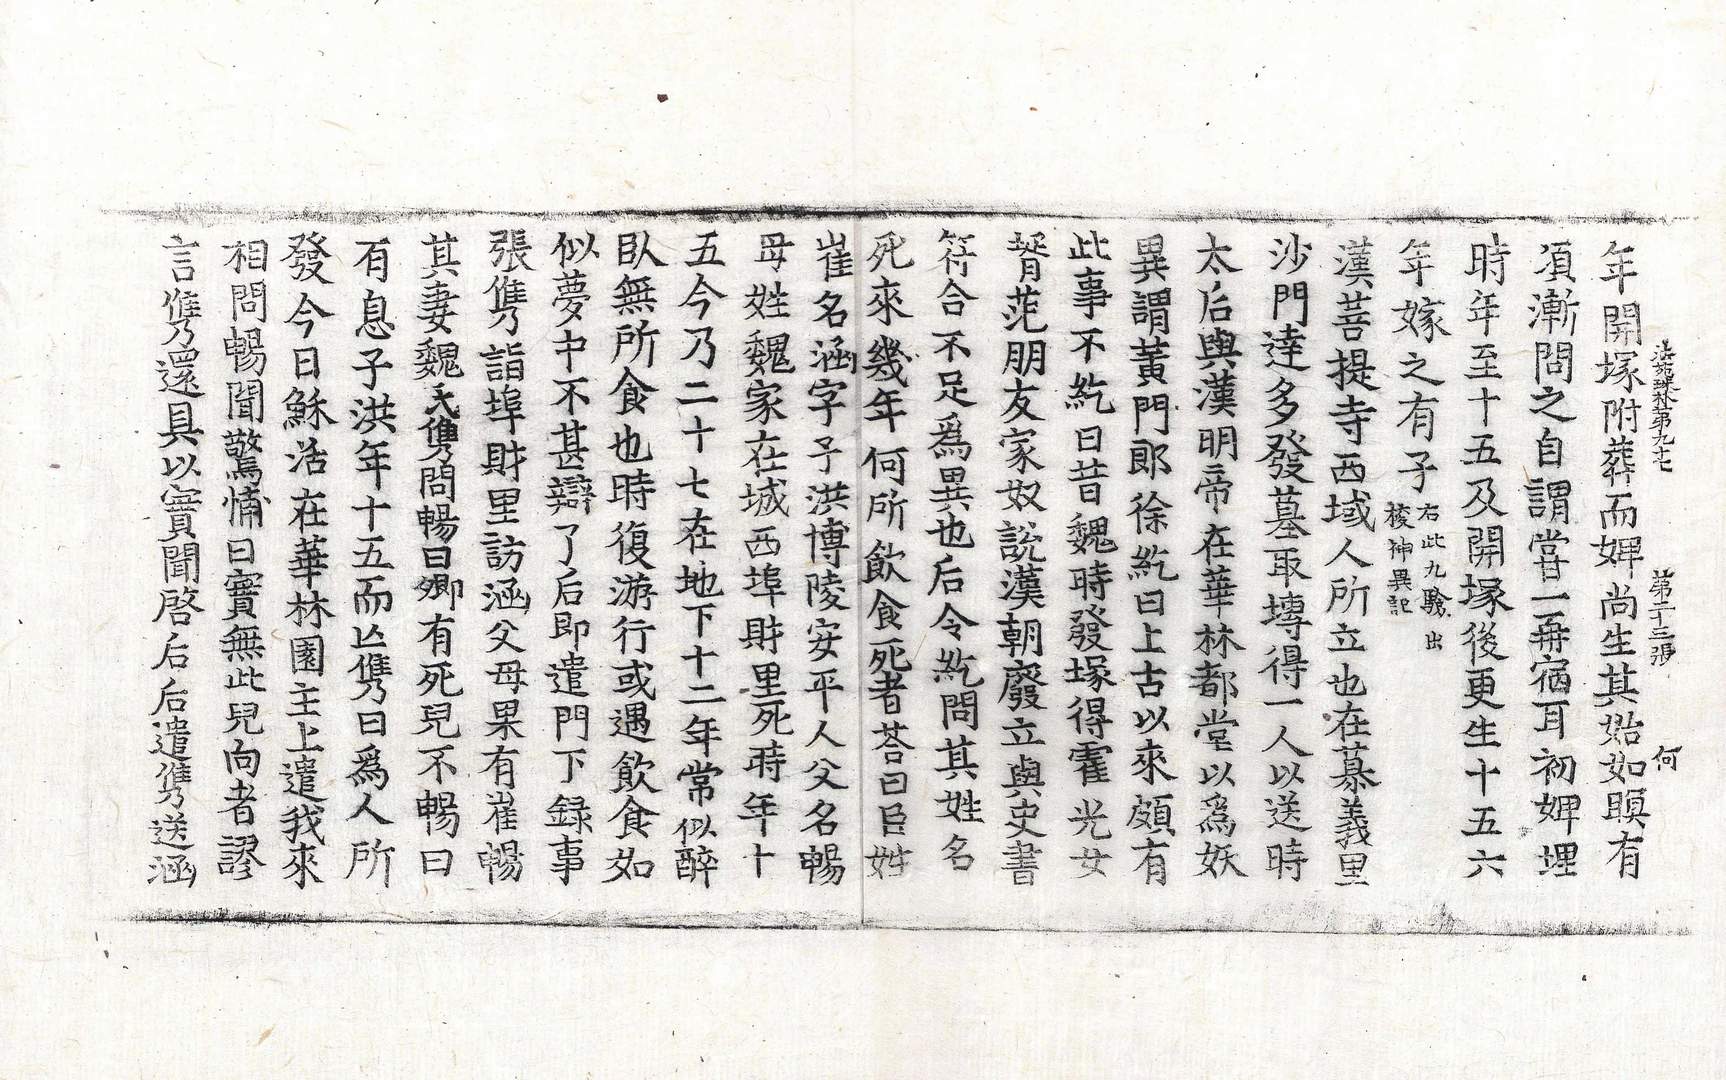 法苑珠林第九十七　第二十三張　何
年開塚附葬而婢尚生其始如瞑有
湏漸問之自謂當一再宿耳初婢埋
時年至十五及開塚後更生十五六
年嫁之有子右此九驗出
搜神異記
漢菩提寺西域人所立也在慕義里
沙門達多發墓取塼得一人以送時
太后與漢明帝在華林都堂以爲妖
異謂黃門郎徐紇曰上古以來頗有
此事不紇曰昔魏時發塚得霍光女
壻范朋友家奴說漢朝廢立與史書
符合不足爲異也后令紇問其姓名
死來幾年何所飲食死者荅曰臣姓
崔名涵字子洪博陵安平人父名暢
母姓魏家在城西埠財里死時年十
五今乃二十七在地下十二年常似醉
臥無所食也時復游行或遇飲食如
似夢中不甚辯了后即遣門下録事
張雋詣埠財里訪涵父母果有崔暢
其妻魏氏雋問暢曰卿有死兒不暢曰
有息子洪年十五而亾雋曰爲人所
發今日穌活在華林園主上遣我來
相問暢聞驚怖曰實無此兒向者謬
言雋還具以實聞啓后后遣雋送涵